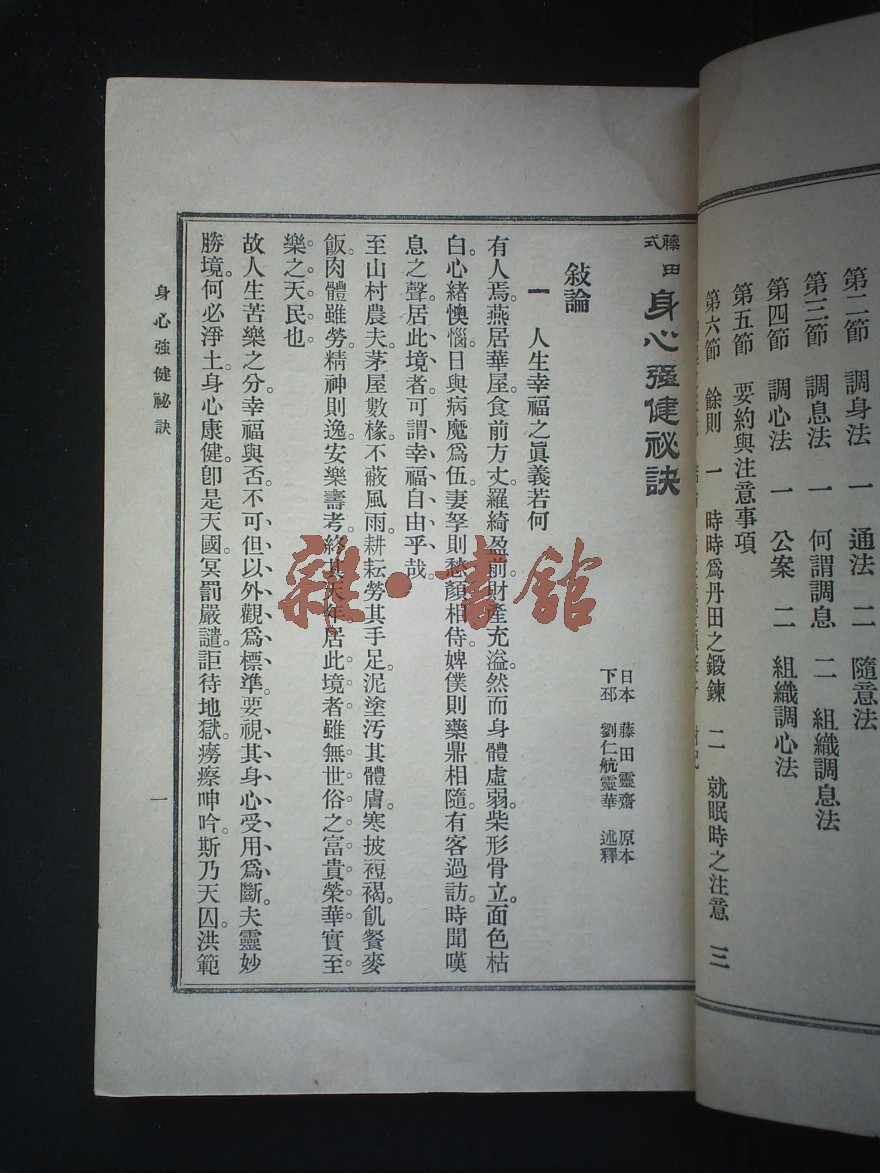 第二節　調身法　一　通法　二　隨意法
第三節　調息法　一　何謂調息　二　組織調息法
第四節　調心法　一　公案　二　組織調心法
第五節　要約與注意事項
第六節　餘則　一　時時爲丹田之鍛鍊　二　就眠時之注意　三
藤田式　身心强健祕訣
日本　藤田靈齋　原本
下邳　劉仁航靈華　述釋
敍論
一　人生幸福之眞義若何
有人焉。燕居華屋。食前方丈。羅綺盈前。財產充溢。然而身體虛弱。柴形骨立。面色枯
白。心緒懊惱。日與病魔爲伍。妻孥則愁顏相侍。婢僕則藥鼎相隨。有客過訪。時聞嘆
息之聲。居此境者、可謂幸福自由乎哉。
至山村農夫。茅屋數椽。不蔽風雨。耕耘勞其手足。泥塗汚其體膚。寒披裋褐。飢餐麥
飯。肉體雖勞。精神則逸。安樂壽考。終其天年。居此境者。雖無世俗之富貴榮華。實至
樂之天民也
故人生苦樂之分。幸福與否。不可但以外觀爲標準。要視其身心受用爲斷。夫靈妙
勝境。何必淨土。身心康健。卽是天國。冥罰嚴譴。詎待地獄。癆瘵呻吟。斯乃天囚。洪範
身心強健祕訣
一
雜·書館